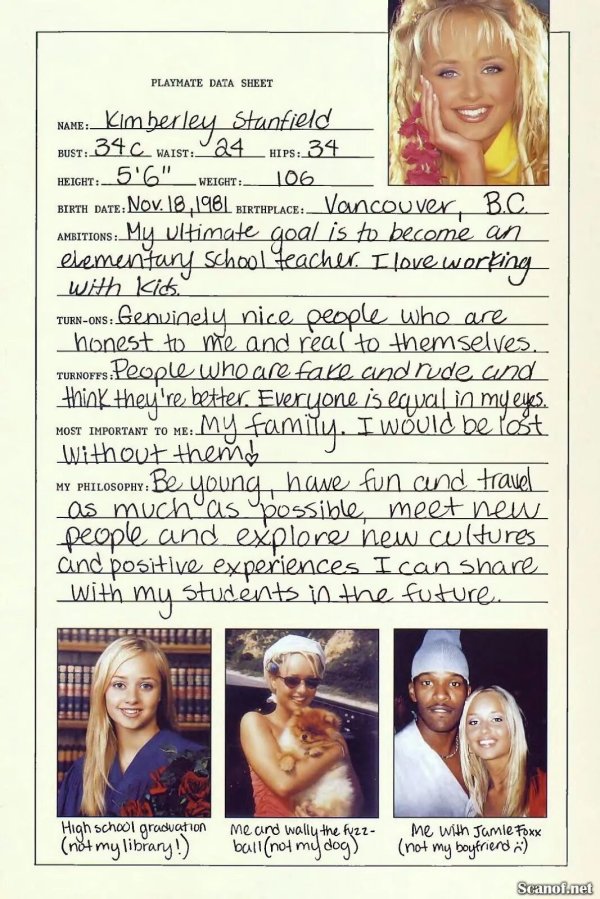 PLAYMATE DATA SHEET
NAME: Kimberley Stanfield
BUST: 34C WAIST: 24 HIPS: 34
HEIGHT: 5'6" WEIGHT: 106
BIRTH DATE: Nov. 18, 1981 BIRTHPLACE: Vancouver, B.C.
AMBITIONS: My ultimate goal is to become an
elementary school teacher. I love working
with kids.
TURN-ONS: Genuinely nice people who are
honest to me and real to themselves.
TURNOFFS: People who are fake and rude and
think they're better. Everyone is equal in my eyes.
MOST IMPORTANT TO ME: My family. I would be lost
without them!
MY PHILOSOPHY: Be young, have fun and travel
as much as possible, meet new
people and explore new cultures
and positive experiences I can share
with my students in the future.
High school graduation
(not my library!)
Me and Wally the fuzz-
ball (not my dog)
Me with Jamie Foxx
(not my boyfriend :()
Scanof.net